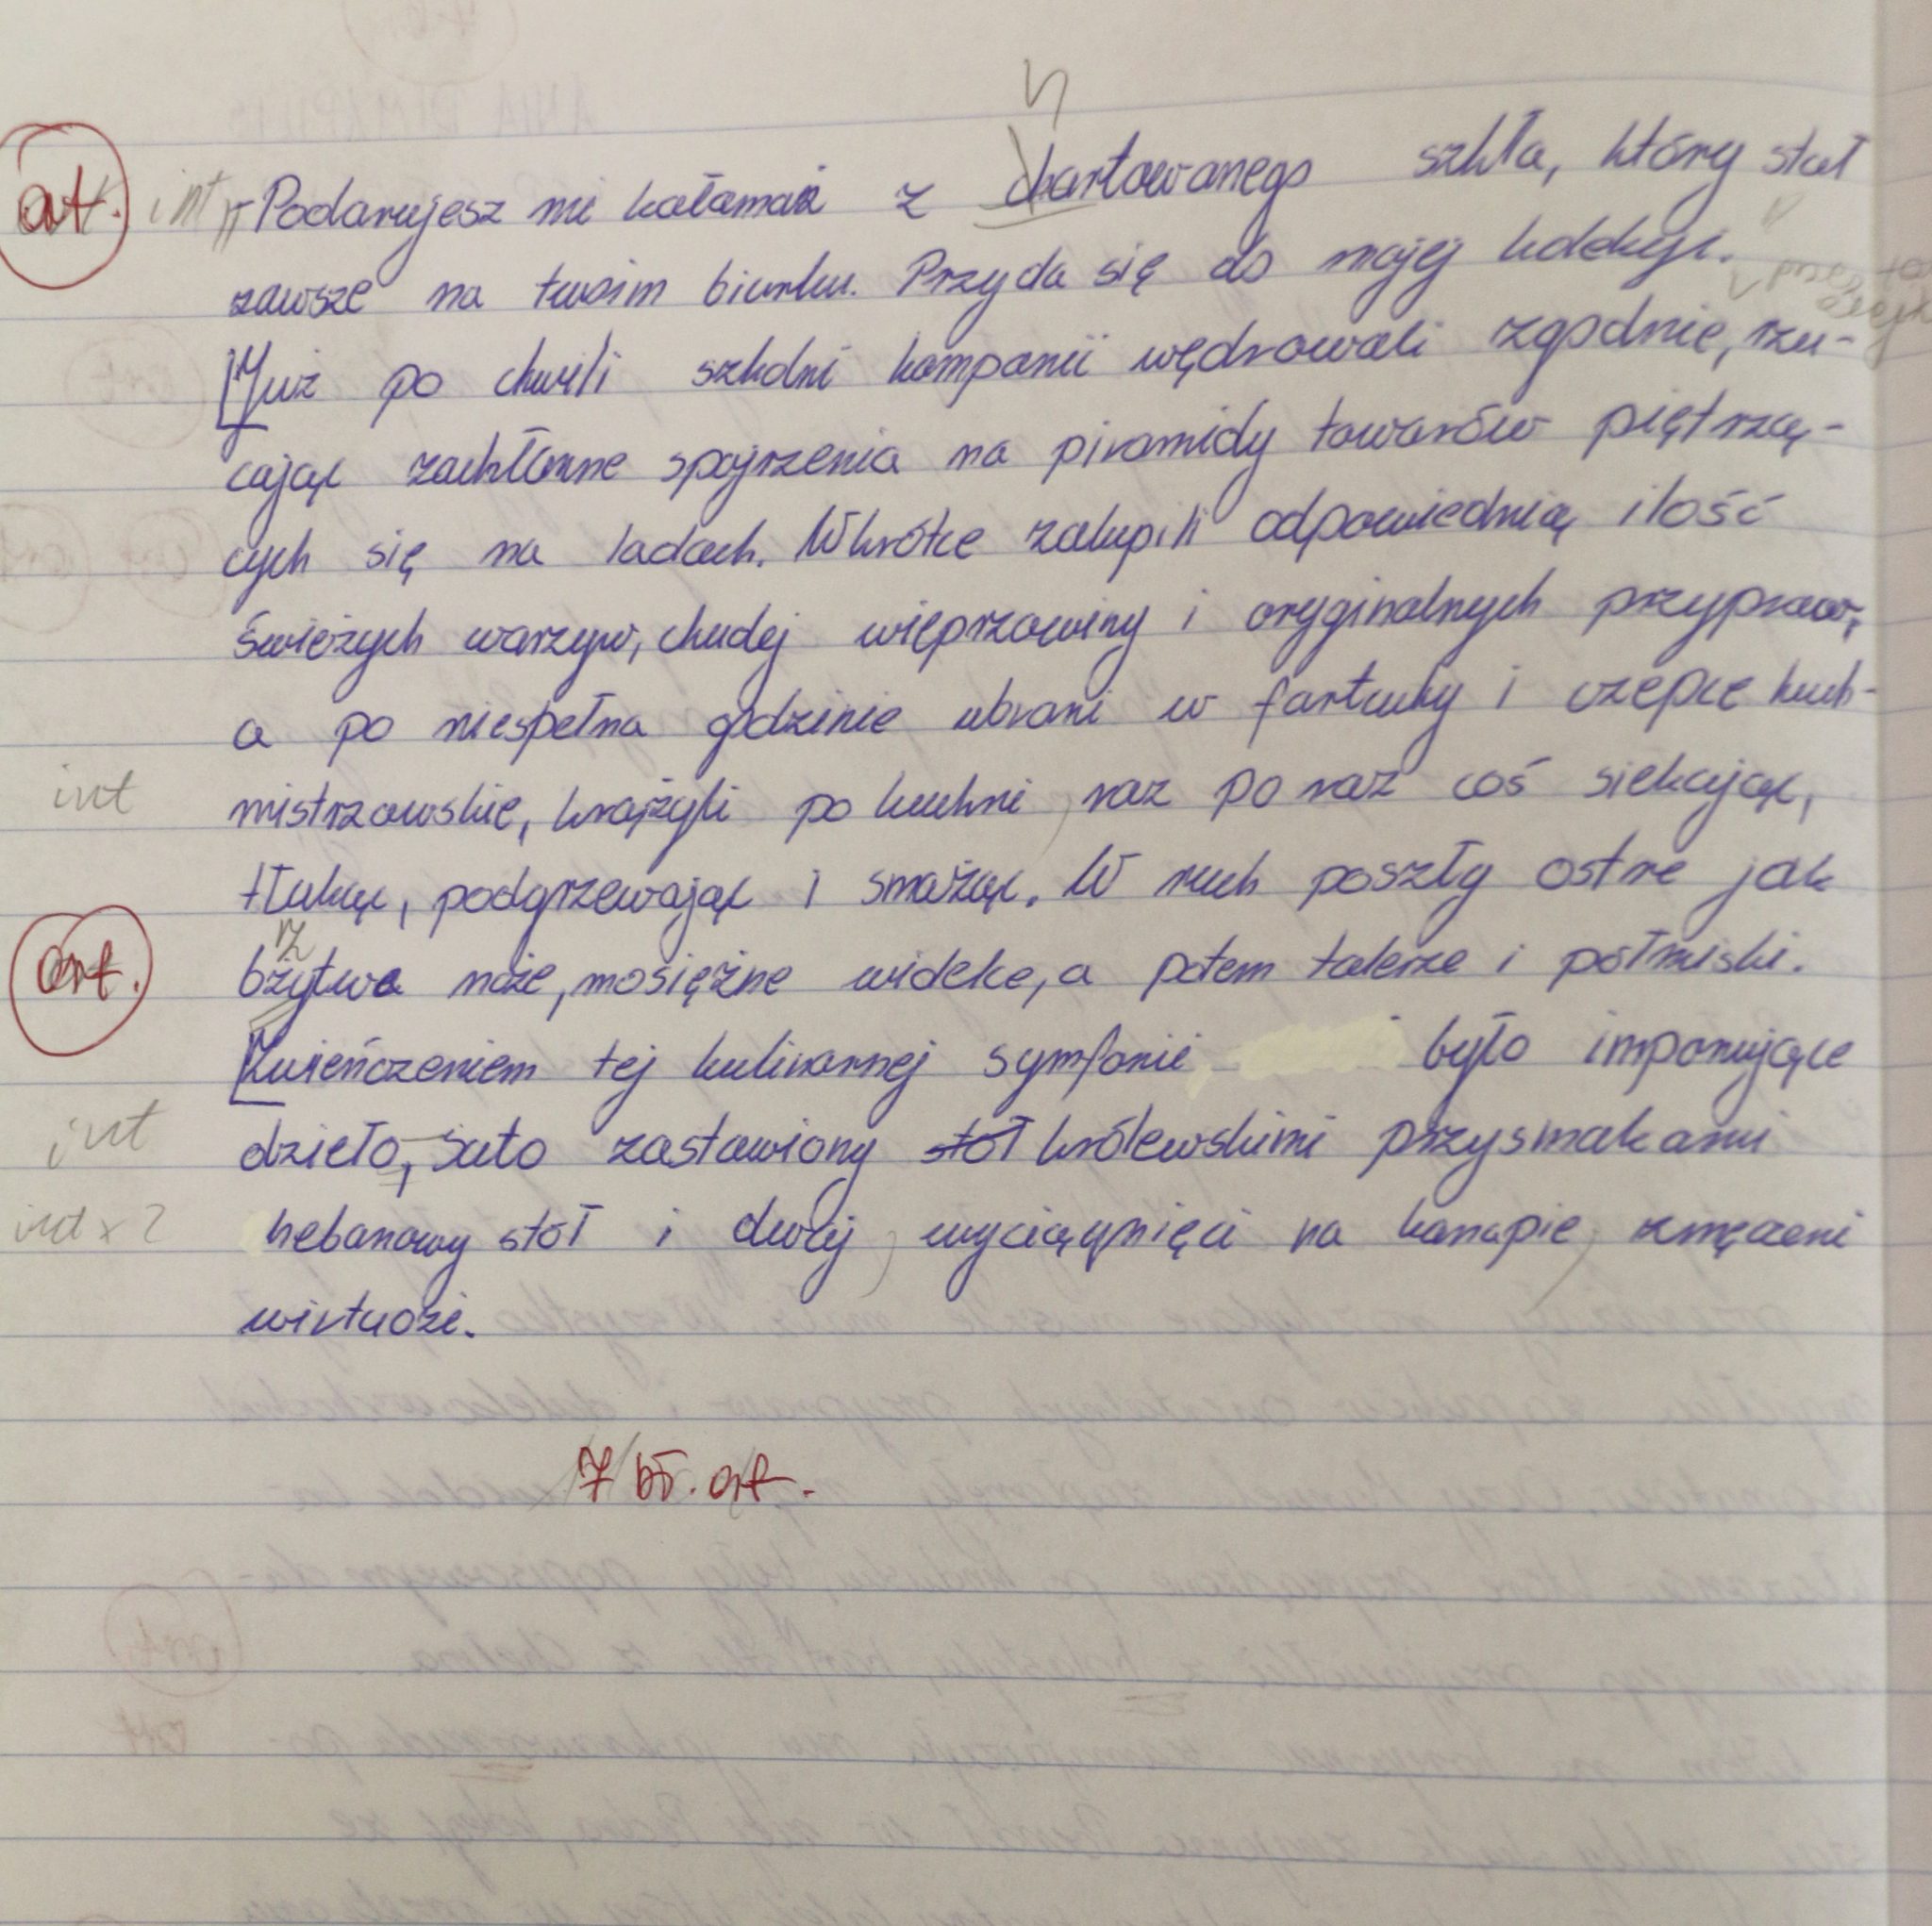 h
ort. int Podarujesz mi kałamaż z chartowanego szkła, który stał
zawsze na twoim biurku. Przyda się do mojej kolekcji.
Już po chwili szkolni kompanii wędrowali zgodnie, rzu-
cając zachłanne spojrzenia na piramidy towarów piętrzą-
cych się na ladach. Wkrótce zakupili odpowiednią ilość
świeżych warzyw, chudej wieprzowiny i oryginalnych przypraw,
a po niespełna godzinie ubrani w fartuchy i czepce kuch-
int mistrzowskie, krążyli po kuchni, raz po raz coś siekając,
tłukąc, podgrzewając i smażąc. W ruch poszły ostre jak
rz
ort. bżytwa noże, mosiężne widelce, a potem talerze i półmiski.
Zwieńczeniem tej kulinarnej symfonii było imponujące
int dzieło, suto zastawiony stół królewskimi przysmakami
int x 2 hebanowy stół i dwaj, wyciągnięci na kanapie, zmęczeni
wirtuozi.
7 bł. ort.